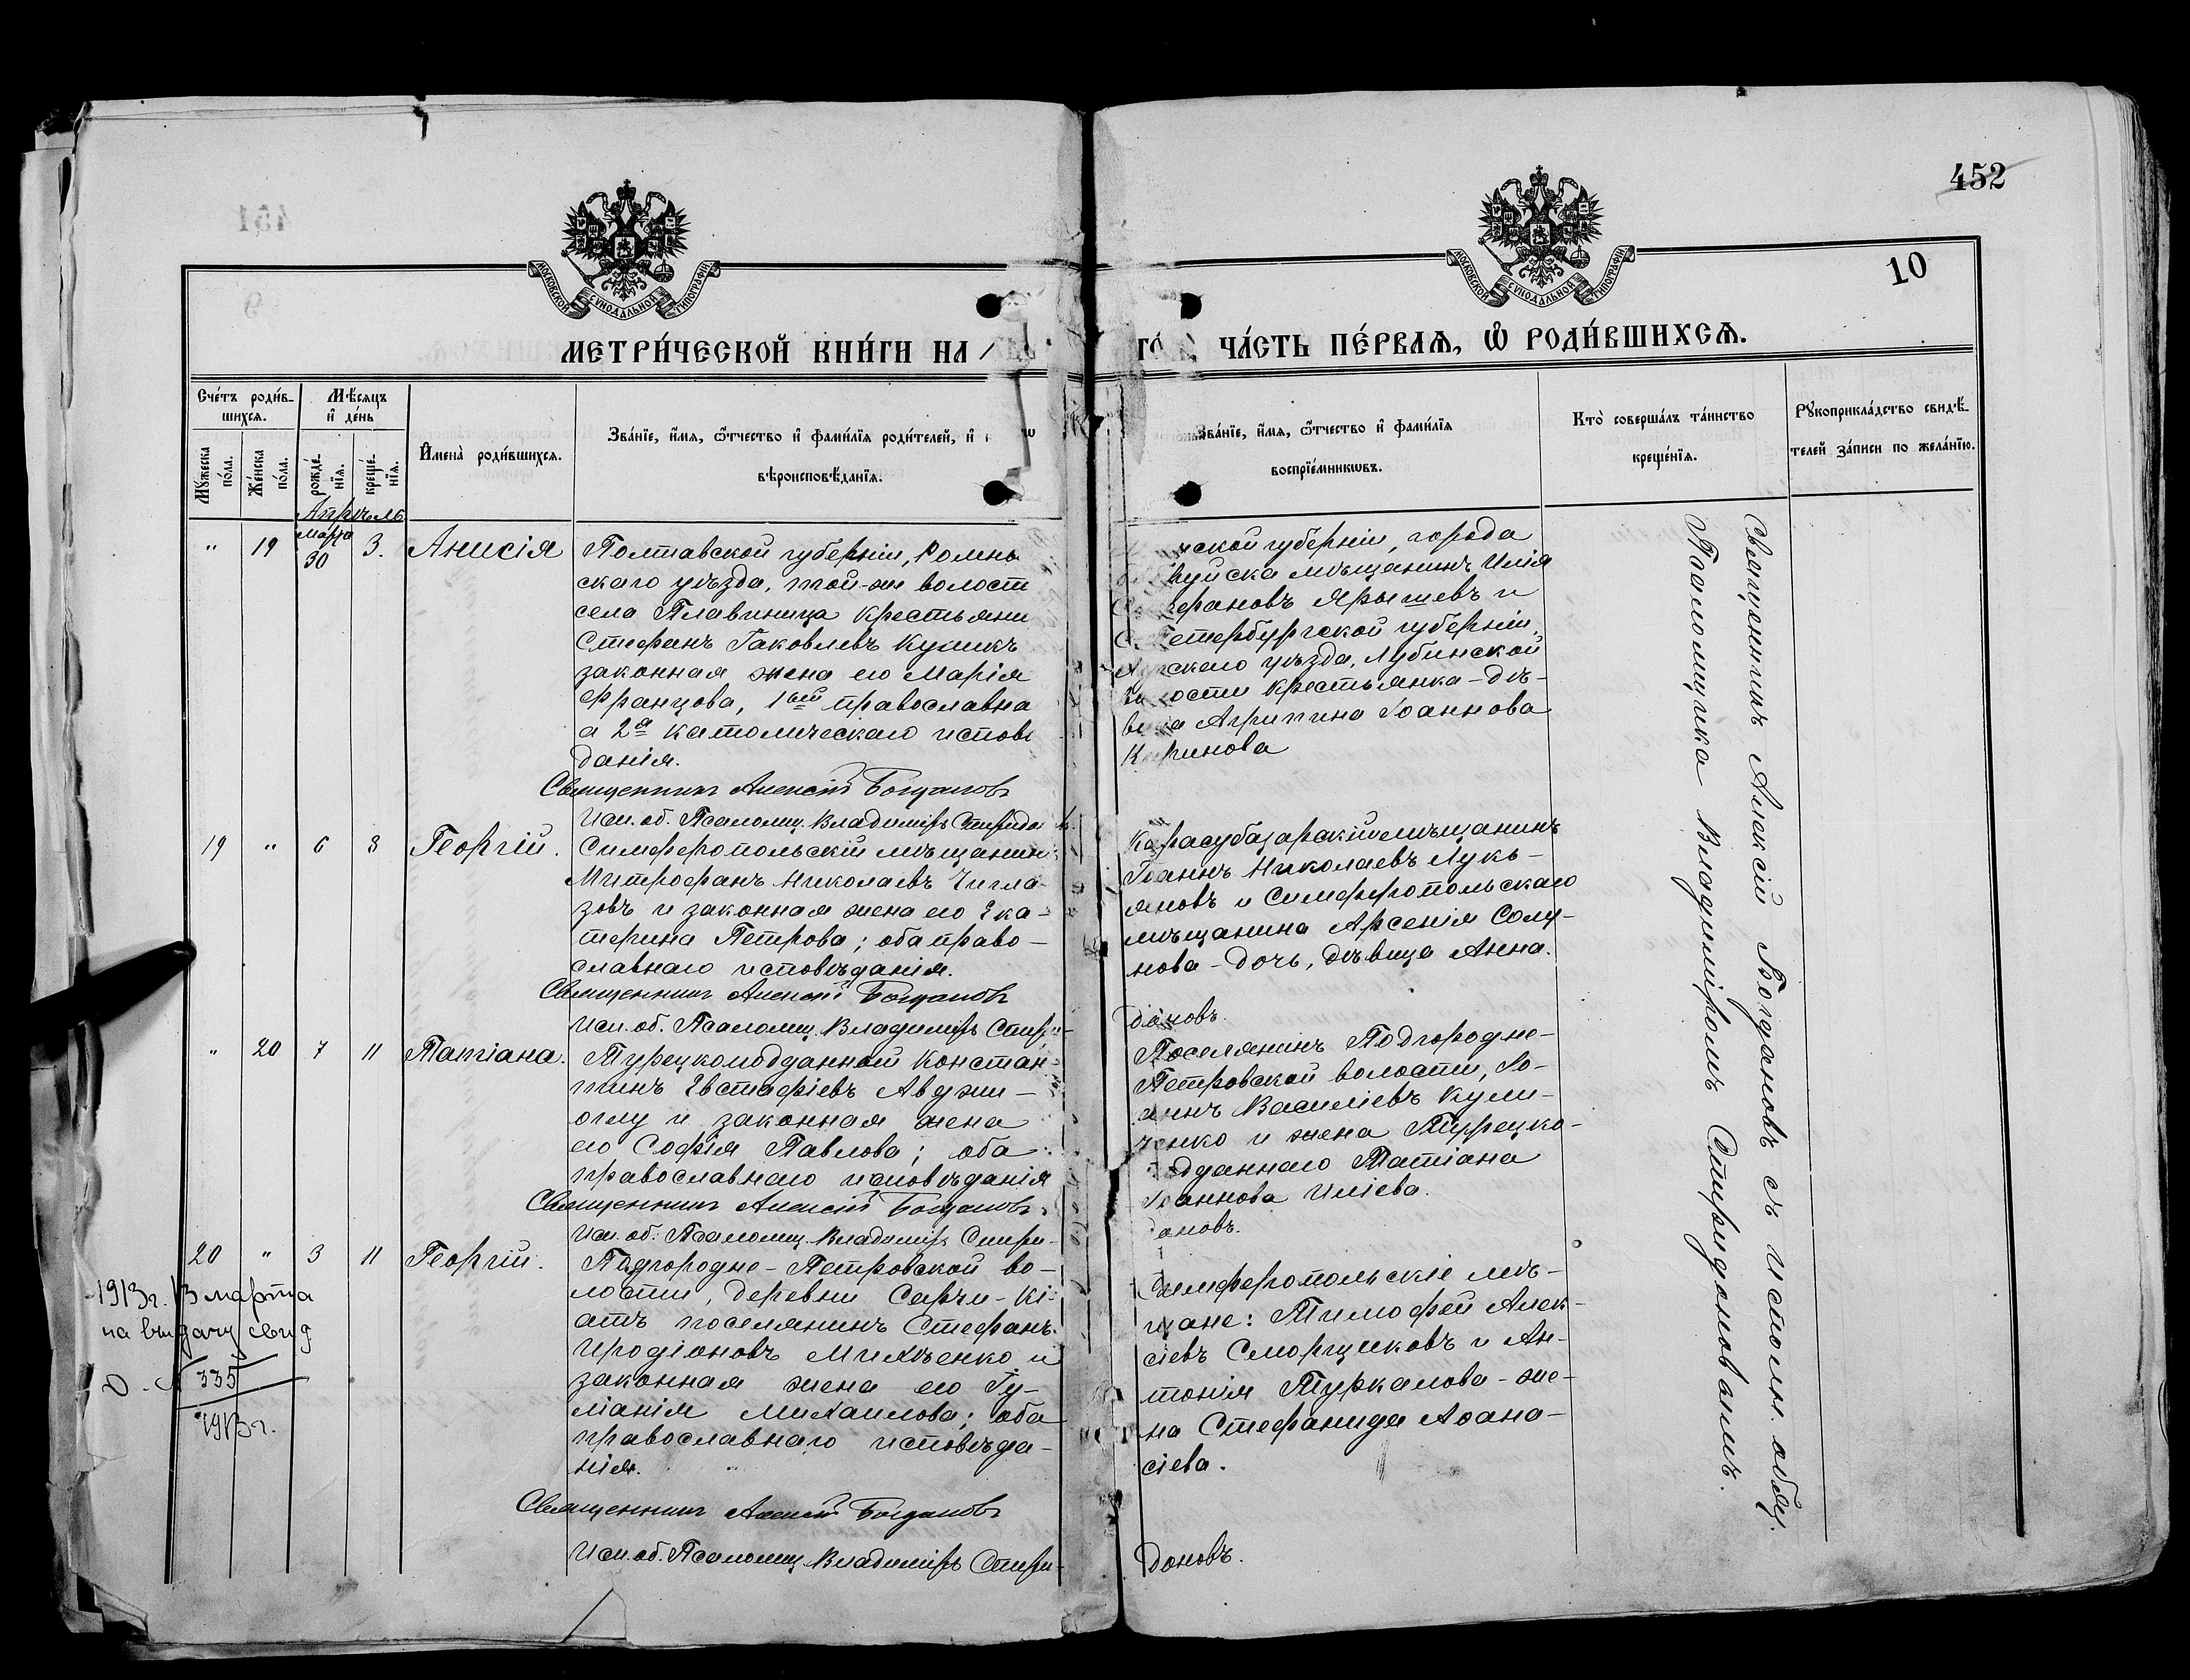 452
10
МОСКОВСКОЙ СѴНОДАЛЬНОЙ ТИПОГРАФІИ
МОСКОВСКОЙ СѴНОДАЛЬНОЙ ТИПОГРАФІИ
МЕТРИ́ЧЕСКОЙ КНИ́ГИ НА
ЧА́СТЬ ПЕ́РВАѦ, Ѡ РОДИ́ВШИХСѦ.
Сче́тъ роди́в-
шихся.
Мѣ́сяцъ
и де́нь
Мꙋ́жеска
по́ла.
Же́нска
по́ла.
рожде́-
нїя.
креще́-
нїя.
И҆мена̀ роди́вшихся.
Зва́нїе, и҆́мя, ѻ҆́тчество и҆ фами́лїя роди́телей, и҆
вѣроисповѣ́данїя.
Зва́нїе, и҆́мя, ѻ҆́тчество и҆ фами́лїя
воспрїе́мникѡвъ.
Кто̀ соверша́лъ та́инство
креще́нїя.
Рꙋкоприкла́дство свидѣ́-
телей за́писи по жела́нїю.
Апрѣль
" 19 Марта 30 3. Анисія
Полтавской губерніи, Роменъ
скаго уѣзда, той-же волост
села Плавиница крестьяни
Стефанъ Іаковлевъ
законная жена его Марія
Францова, 1ый православна
а 2а католическаго исповѣ
данія.
Священникъ Алексій Богдановъ
Исп. об. Псаломщ. Владиміръ Спиридо
ской губерніи, города
руйска мѣщанинъ Илія
Ярышевъ и
Петербургской губерніи,
скаго уѣзда, Лубинской
ости крестьянка-дѣ-
ва Агрипина Іоаннова
19 " 6 8 Георгій.
Симферопольскій мѣщанинъ
Митрофанъ Николаевъ Чигла-
зовъ и законная жена его Ека-
терина Петрова; оба право-
славнаго исповѣданія.
Священникъ Алексій Богдановъ
Исп. об. Псаломщ. Владиміръ Спири-
Карасубазарскій мѣщанинъ
Іоаннъ Николаевъ Лукь-
яновъ и Симферопольскаго
мѣщанина Арсенія Солу-
нова-дочь, дѣвица Анна.
доновъ.
" 20 7 11 Татіана.
Турецкоподданной Констан-
тинъ Евстафіевъ Авджи-
оглу и законная жена
его Софія Павлова; оба
православнаго исповѣданія
Священникъ Алексій Богдановъ.
Исп. об. Псаломщ. Владиміръ Спири-
Поселянинъ Подгородне-
Петровской волости, Іо-
аннъ Василіевъ Кули-
ченко и жена Турецко-
подданнаго Татіана
Іоаннова Иліева.
доновъ.
20 " 3 11 Георгій.
Подгородне-Петровской во-
лости, деревни Сарчи-Кі-
атъ поселянинъ Стефанъ
Иродіоновъ Михѣенко и
законная жена его Іу-
ліанія Михаилова; оба
православнаго исповѣда-
нія.
Священникъ Алексій Богдановъ
Исп. об. Псаломщ. Владиміръ Спири-
Симферопольскіе мѣ-
щане: Тимофей Алек-
сіевъ Сморщиковъ и Ан-
тонія Туркалова-же-
на Стефанида Аѳана-
сіева.
доновъ.
1913г. 13 марта
на выдачу свид
335
1913г.
Священникъ Алексій Богдановъ съ исполн. обяз.
Псаломщика Владиміромъ Спиридоновымъ.